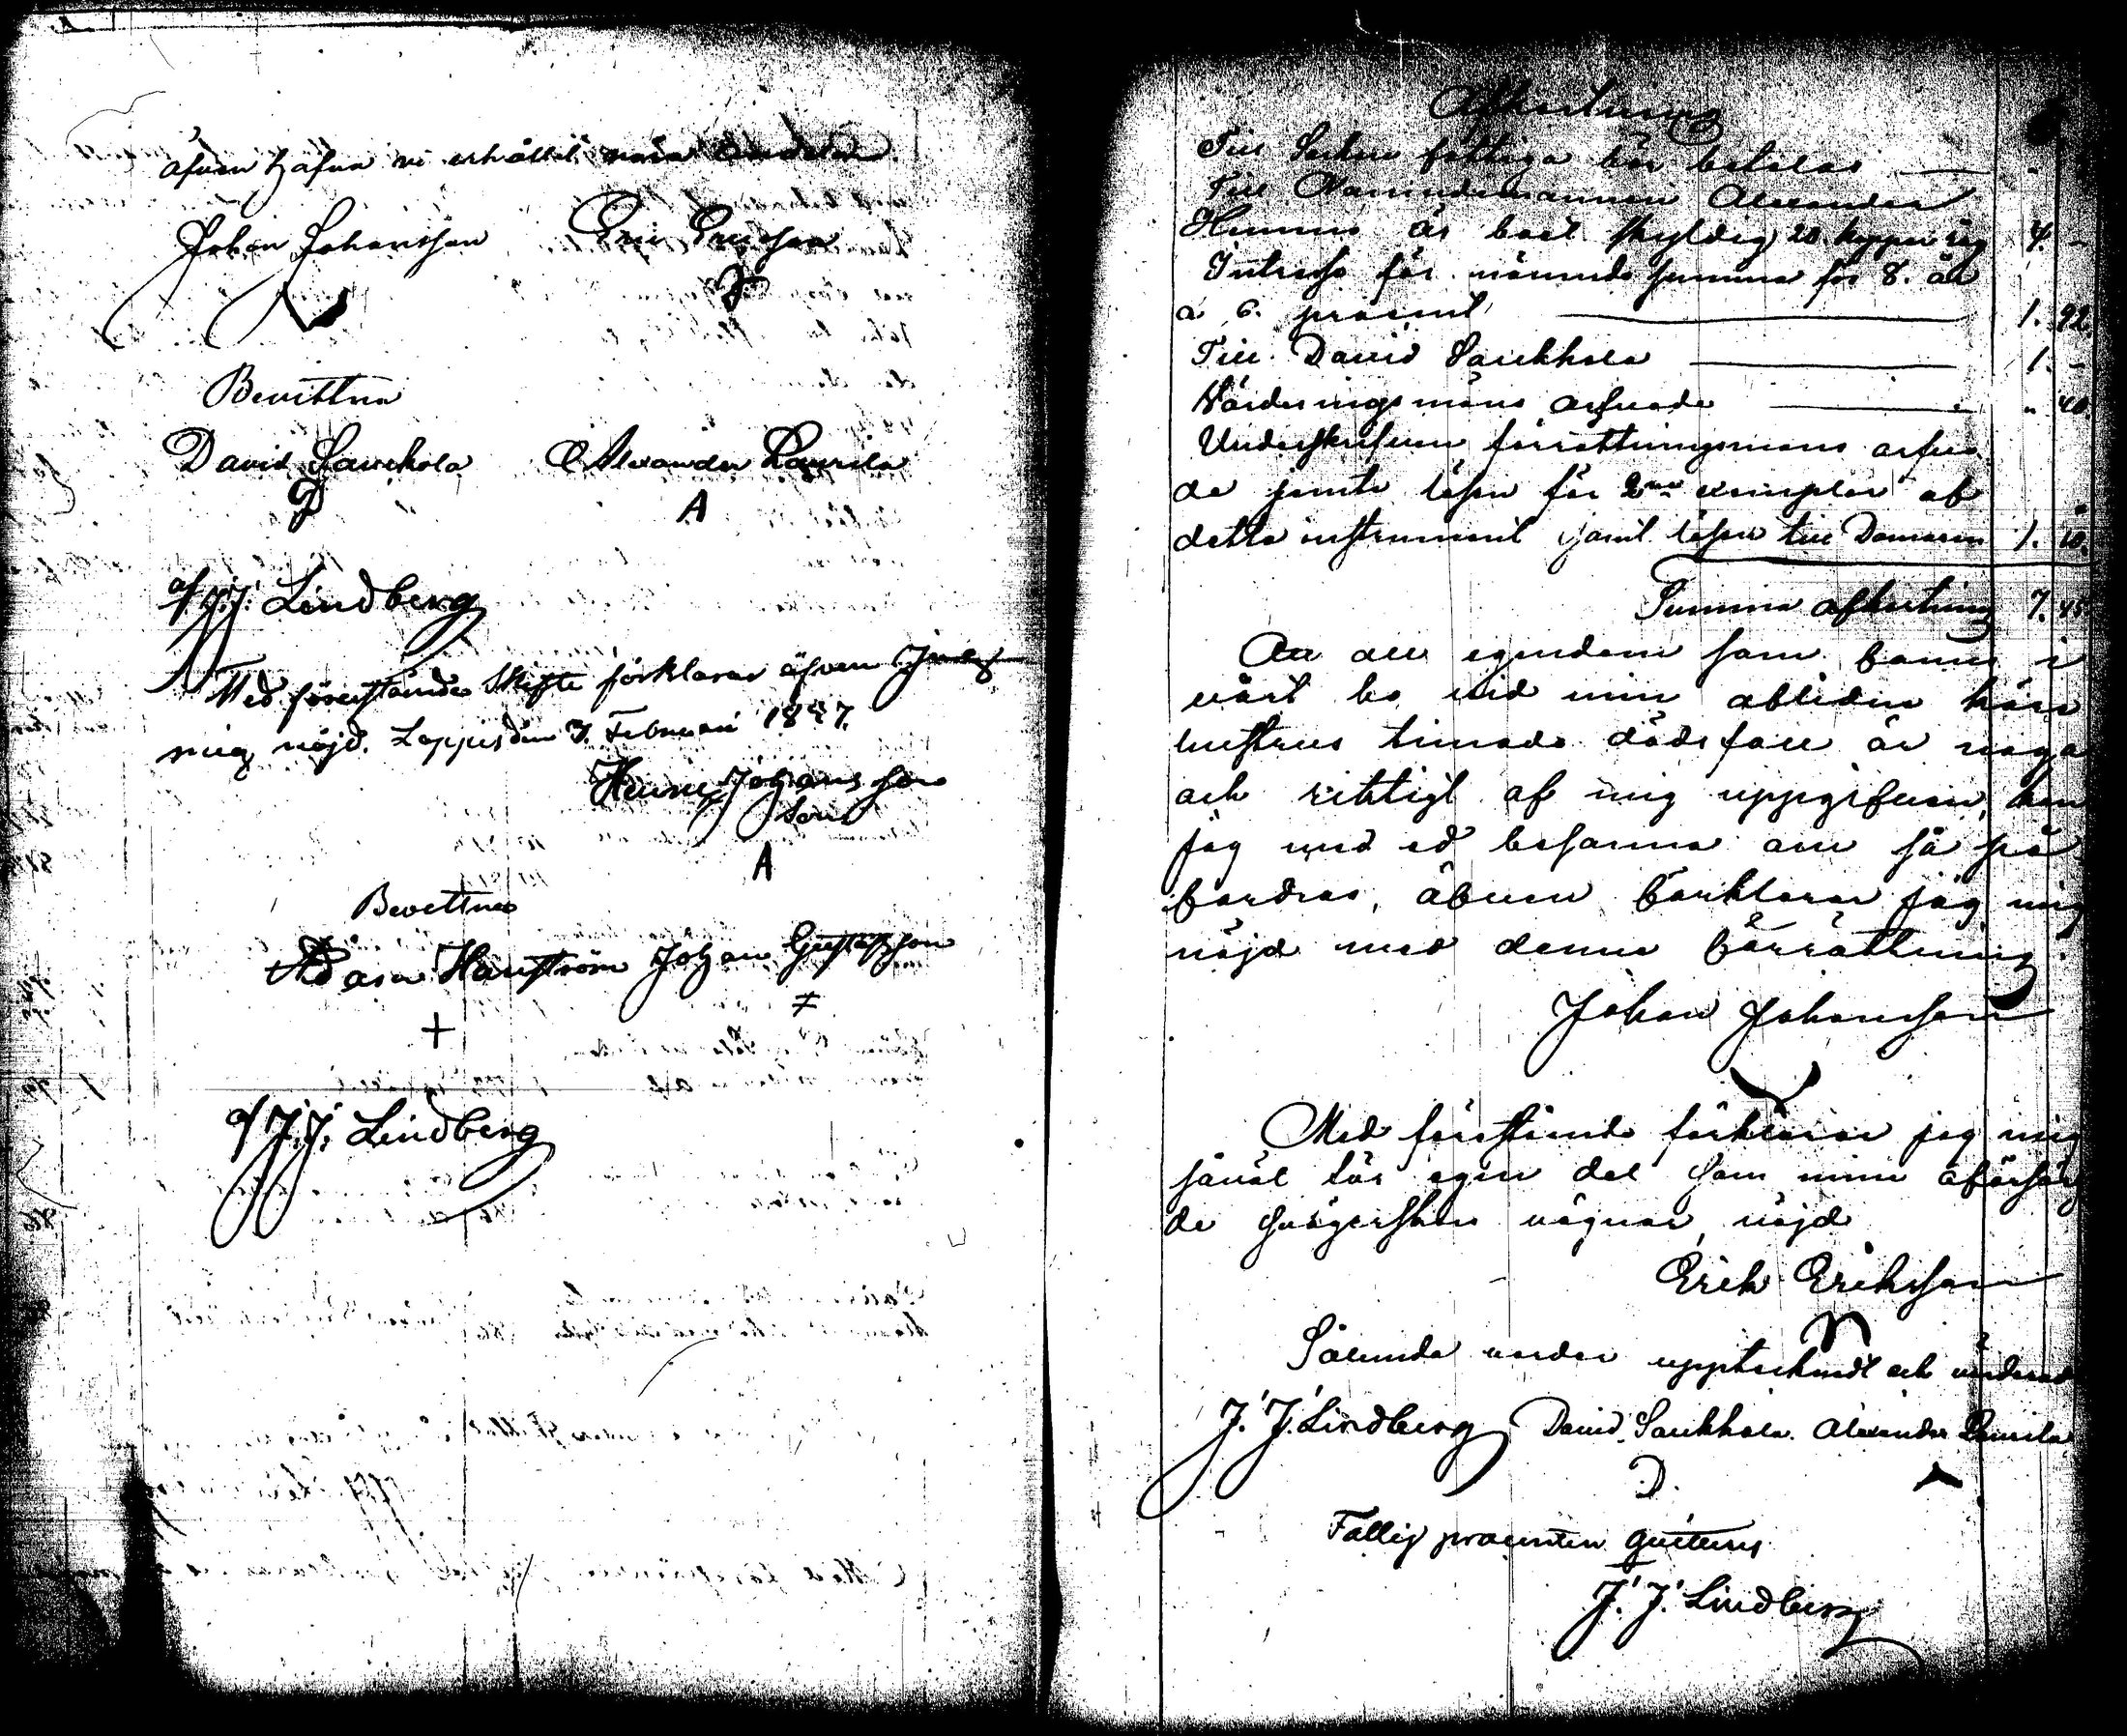 äfven hafva vi erhållit våra andelar
Johan Johansson Eric Ericsson
Bevittna
David Sauckola Alexander Laurila
D A
af J.J. Lindberg
Med förestående Skifte förklarar äfven
mig nöjd. Loppis den 7 Februari 1847.
Johansson
A
Bevittna
Adam Hanström Johan Gustafsson
+ ≠
af J.J. Lindberg
Afkortning
Till Sockne fattiga bör betalas
Till Nämndemannen Alexander
är boet skyldig 20 kappar råg 4. -
Intresse för nämnde summa för 8. år
a 6. procent 1. 92.
Till David Saukkola 1. -
Värderingsmäns arfvode " 40.
Underskrifven förrättningsmans arfvo
de jemte lösen för 2ne exemplar af
detta instrument samt lösen till Domaren 1. 10.
Summa afkortning 7. 45
An all egendom som fanns i
vårt bo vid min aflidne kära
hustrus timade dödsfall är noga
och riktigt af mig uppgifven, kan
jag med ed besanna om så på
fordras, äfven förklarar jag mig
nöjd med denna förrättning.
Johan Johansson
Med förestående förklarar jag mig
såväl för egen del som min oförsörj
de vägnar nöjd
Erik Eriksson
Sålunda vorder upptecknadt och värderad
J. J. Lindberg David Saukkola. Alexander Laurila
D.
Fattig procenten quitteras
J. J. Lindberg